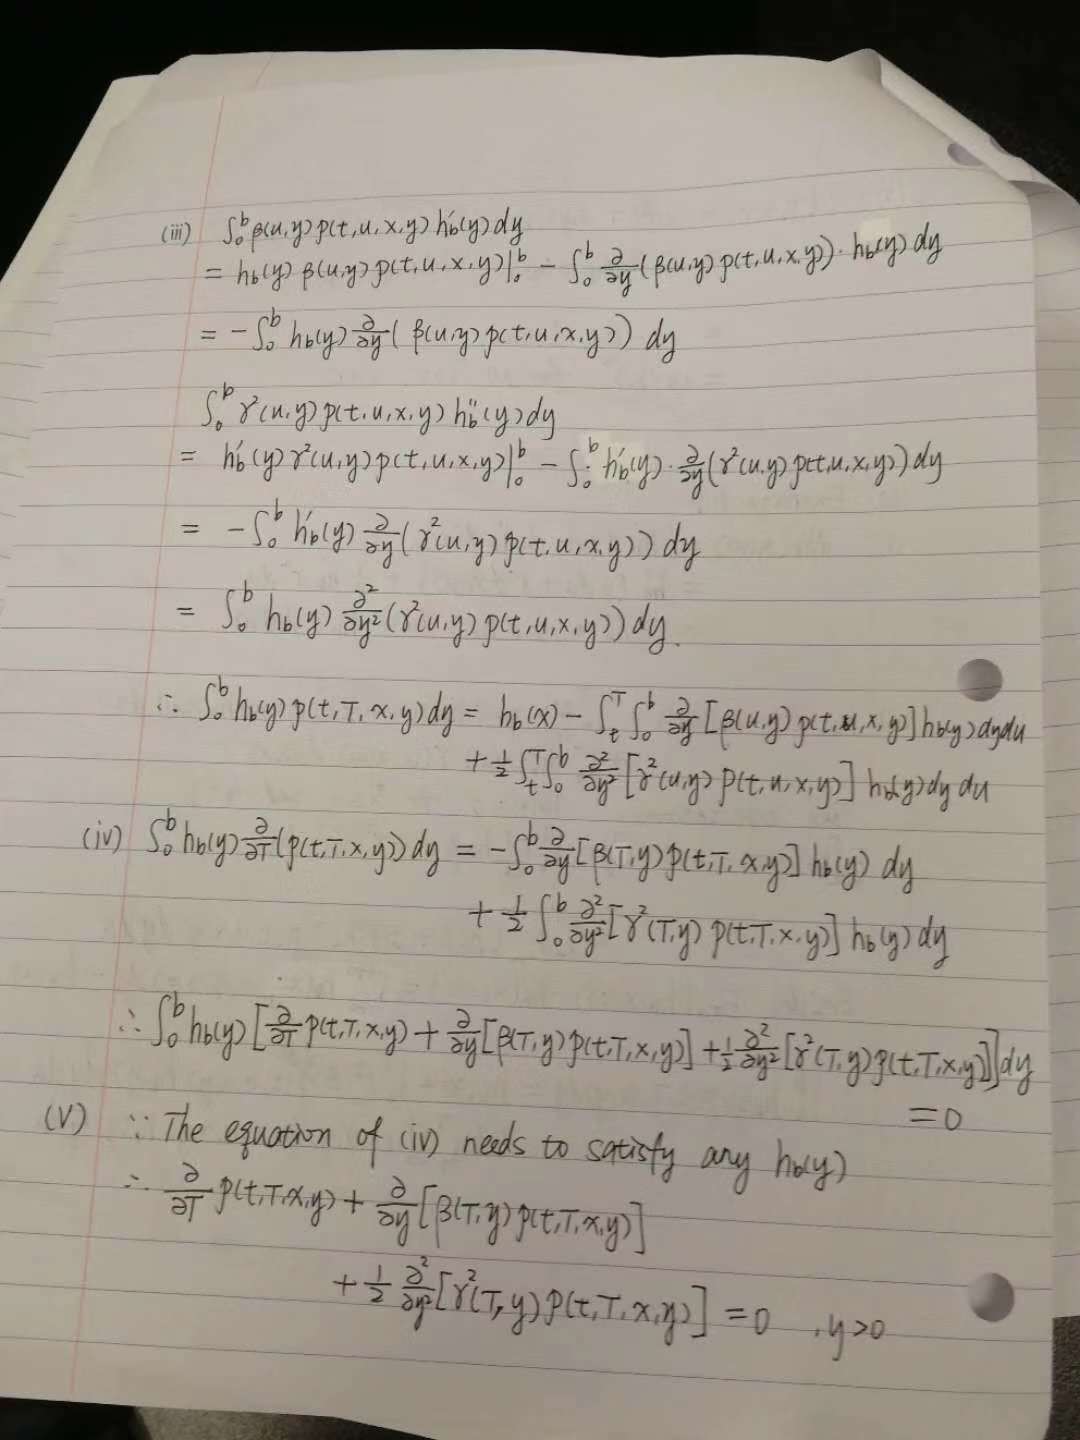 (iii) ∫₀ᵇ β(u,y) p(t,u,x,y) h'_b(y) dy
= h_b(y) β(u,y) p(t,u,x,y)|₀ᵇ − ∫₀ᵇ ∂/∂y (β(u,y) p(t,u,x,y)) · h_b(y) dy
= −∫₀ᵇ h_b(y) ∂/∂y ( β(u,y) p(t,u,x,y)) dy
∫₀ᵇ γ²(u,y) p(t,u,x,y) h''_b(y) dy
= h'_b(y) γ²(u,y) p(t,u,x,y)|₀ᵇ − ∫₀ᵇ h'_b(y) · ∂/∂y (γ²(u,y) p(t,u,x,y)) dy
= −∫₀ᵇ h'_b(y) ∂/∂y (γ²(u,y) p(t,u,x,y)) dy
= ∫₀ᵇ h_b(y) ∂²/∂y² (γ²(u,y) p(t,u,x,y)) dy.
∴ ∫₀ᵇ h_b(y) p(t,T,x,y) dy = h_b(x) − ∫ₜᵀ ∫₀ᵇ ∂/∂y [β(u,y) p(t,u,x,y)] h_b(y) dy du
+ ½ ∫ₜᵀ ∫₀ᵇ ∂²/∂y² [γ²(u,y) p(t,u,x,y)] h_b(y) dy du
(iv) ∫₀ᵇ h_b(y) ∂/∂T (p(t,T,x,y)) dy = −∫₀ᵇ ∂/∂y [β(T,y) p(t,T,x,y)] h_b(y) dy
+ ½ ∫₀ᵇ ∂²/∂y² [γ²(T,y) p(t,T,x,y)] h_b(y) dy
∴ ∫₀ᵇ h_b(y) [∂/∂T p(t,T,x,y) + ∂/∂y [β(T,y) p(t,T,x,y)] + ½ ∂²/∂y² [γ²(T,y) p(t,T,x,y)]] dy
= 0
(V) ∵ The equation of (iv) needs to satisfy any h_b(y)
∴ ∂/∂T p(t,T,x,y) + ∂/∂y [β(T,y) p(t,T,x,y)]
+ ½ ∂²/∂y² [γ²(T,y) p(t,T,x,y)] = 0 , y>0